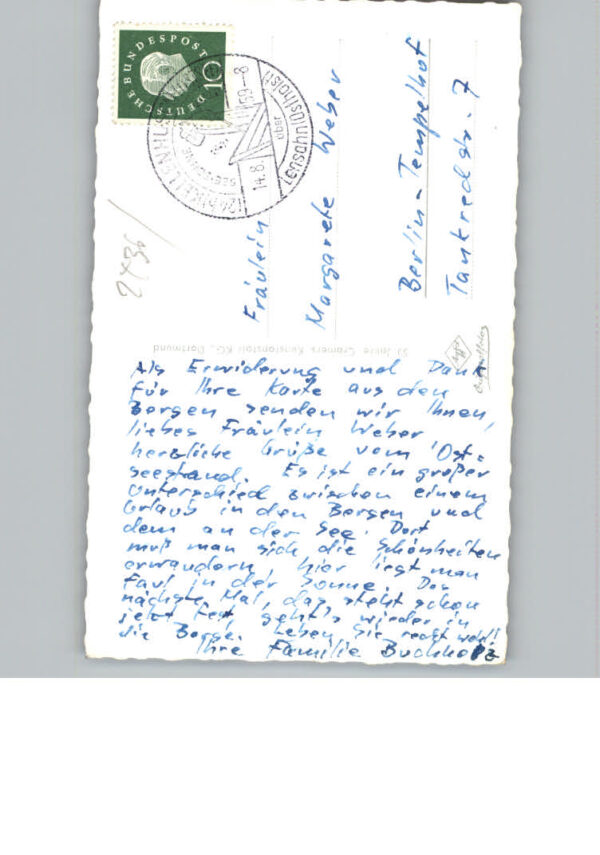 DEUTSCHE BUNDESPOST
10
14.8. 59-8
über Lensahn (Ostholst)
Fräulein
Margarete Weber
Berlin-Tempelhof
Tankredstr. 7
Cramers Kunstanstalt KG., Dortmund
Als Erwiderung und Dank
für Ihre Karte aus den
Bergen senden wir Ihnen,
liebes Fräulein Weber
herzliche Grüße vom Ost-
seestrand. Es ist ein großer
Unterschied zwischen einem
Urlaub in den Bergen und
dem an der See. Dort
muß man sich die Schönheiten
erwandern, hier liegt man
faul in der Sonne. Das
nächste Mal, das steht schon
jetzt fest, geht's wieder in
die Berge. Leben Sie recht wohl!
Ihre Familie Buchholz